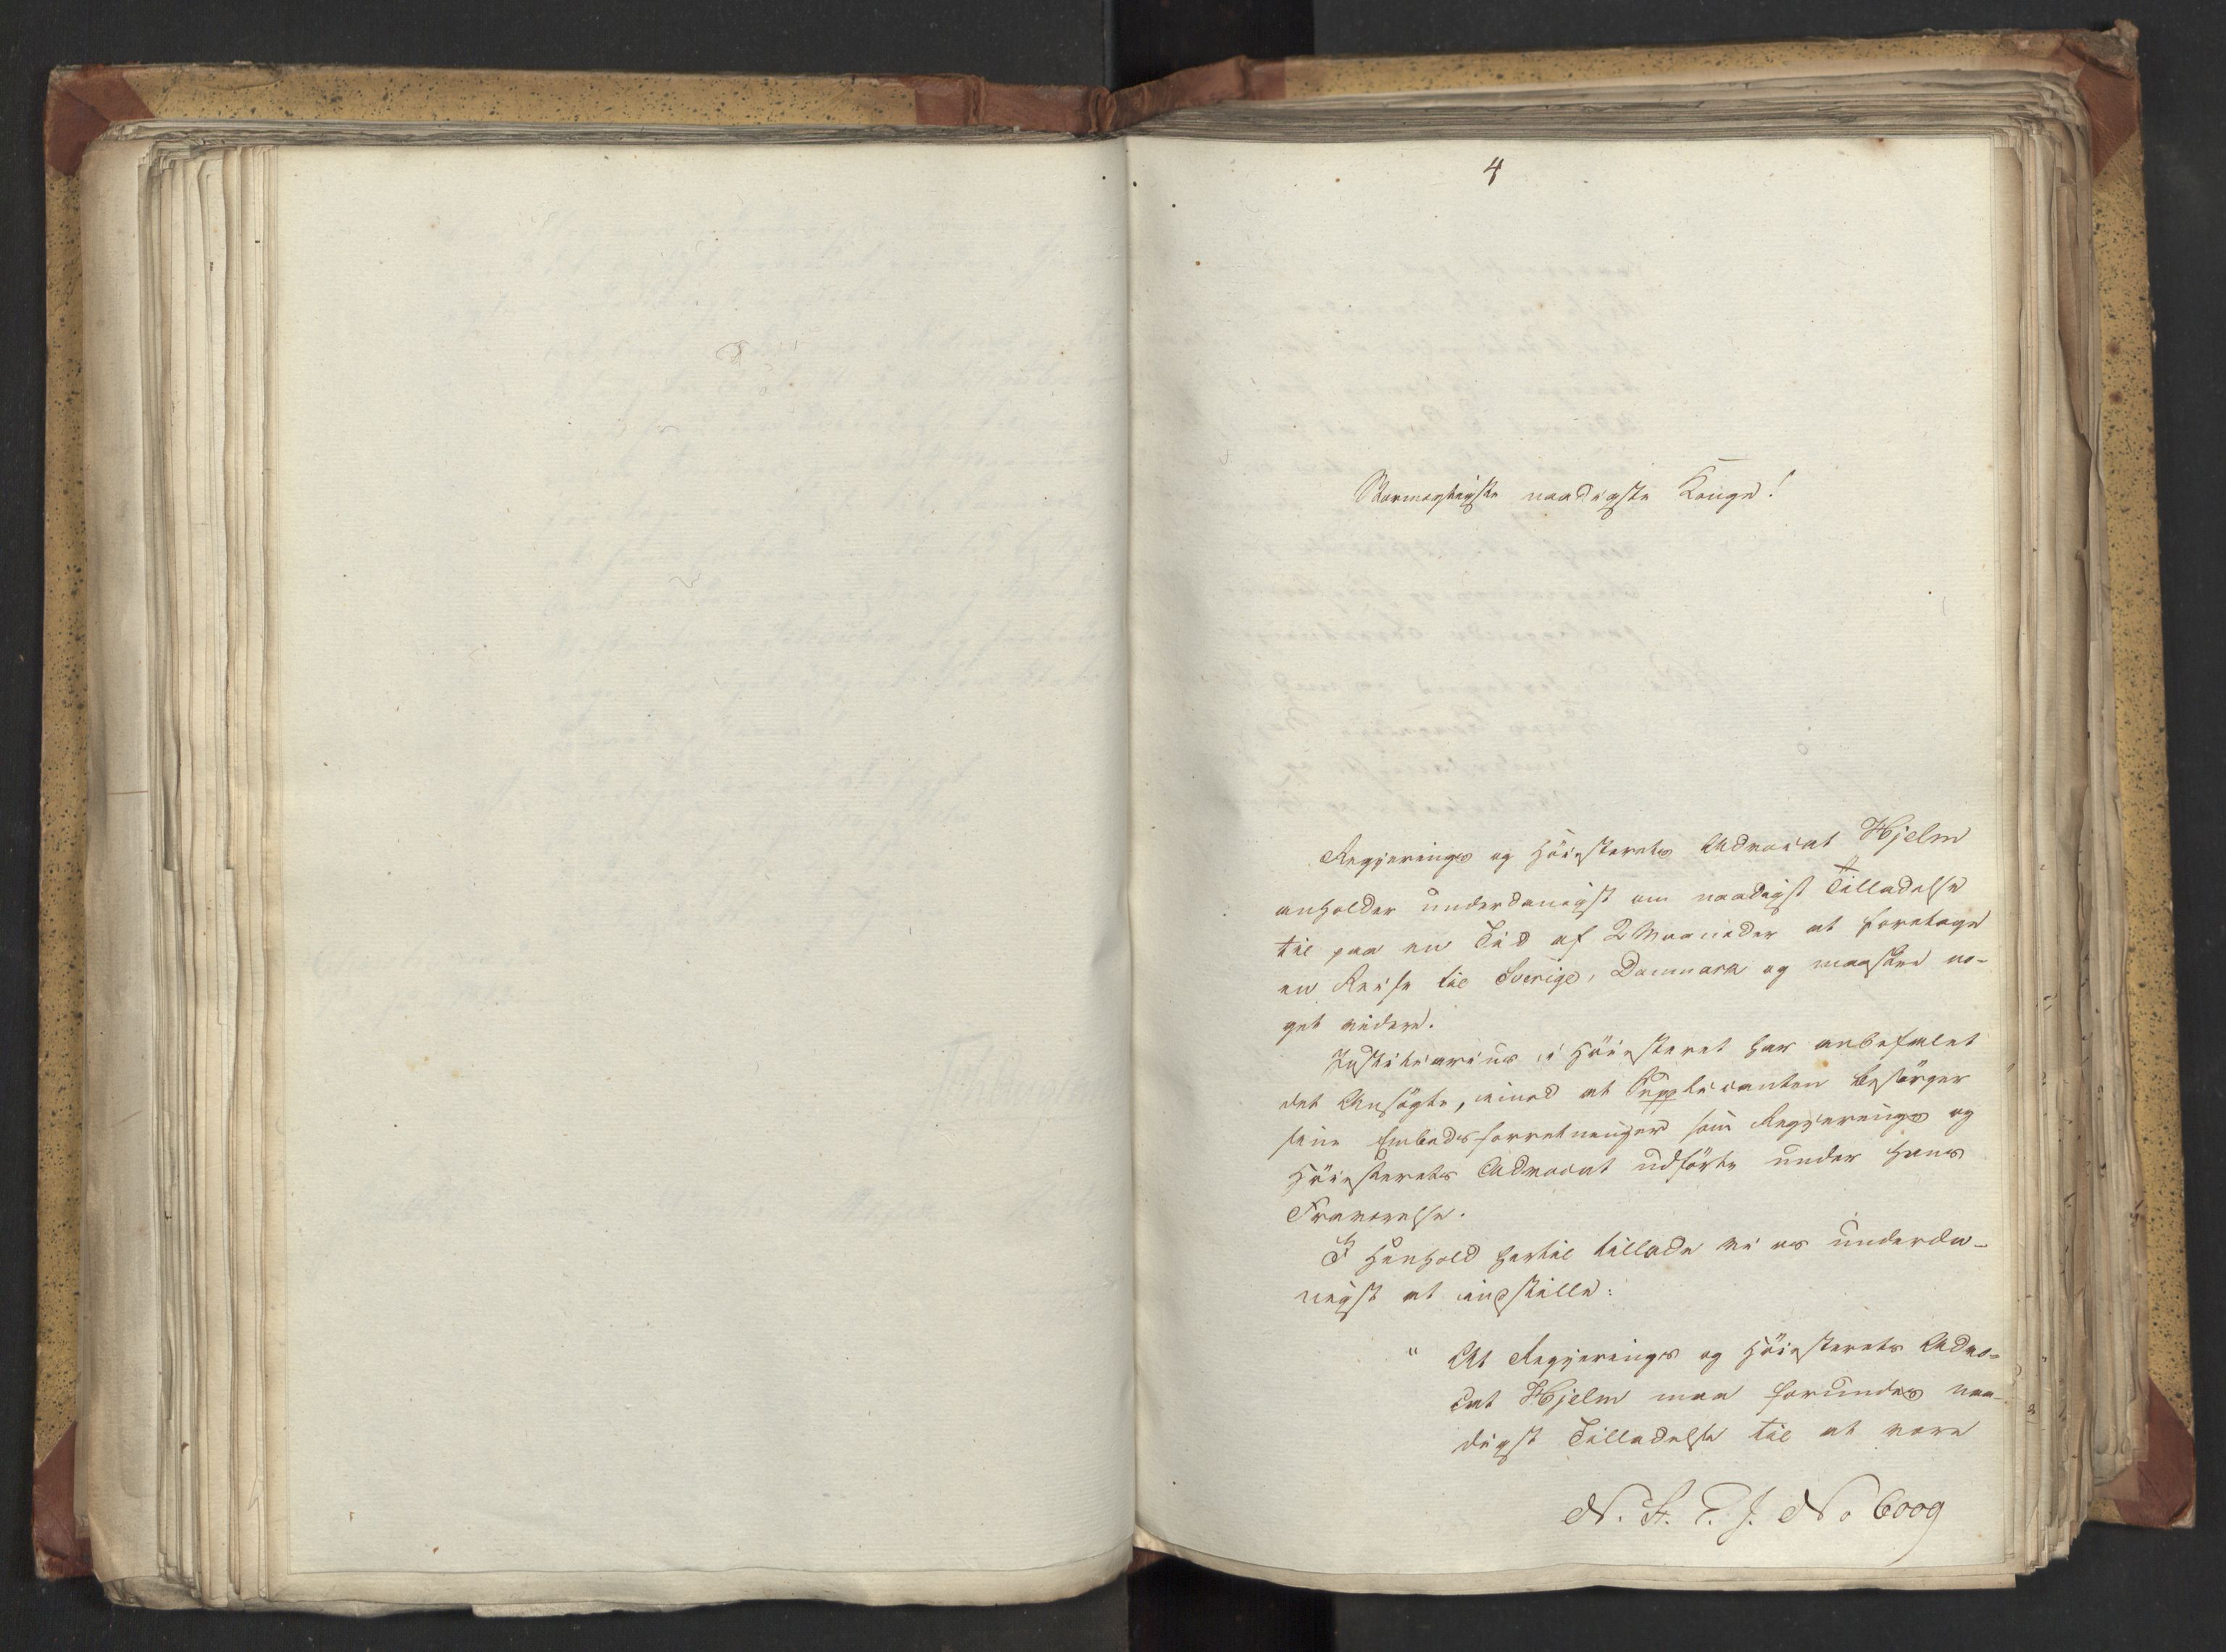 4
Stormægtigste naadigste Konge!
Regjerings og Höiesterets Advocat Hjelm
anholder underdanigst om naadigst Tilladelse
til paa en Tid af 2 Maaneder at foretage
en Reise til Sverige, Danmark og maaskee no-
get videre.
Justitiarius i Höiesteret har anbefalet
det Ansögte, imod at Supplicanten besörger
sine Embedsforretninger som Regjerings og
Höiesterets Advocat udförte under hans
Fraværelse.
I Henhold hertil tillade vi os underda-
nigst at indstille:
" At Regjerings og Höiesterets Advo-
cat Hjelm maa forundes naa-
digst Tilladelse til at være
N. St. E. J. No 6009